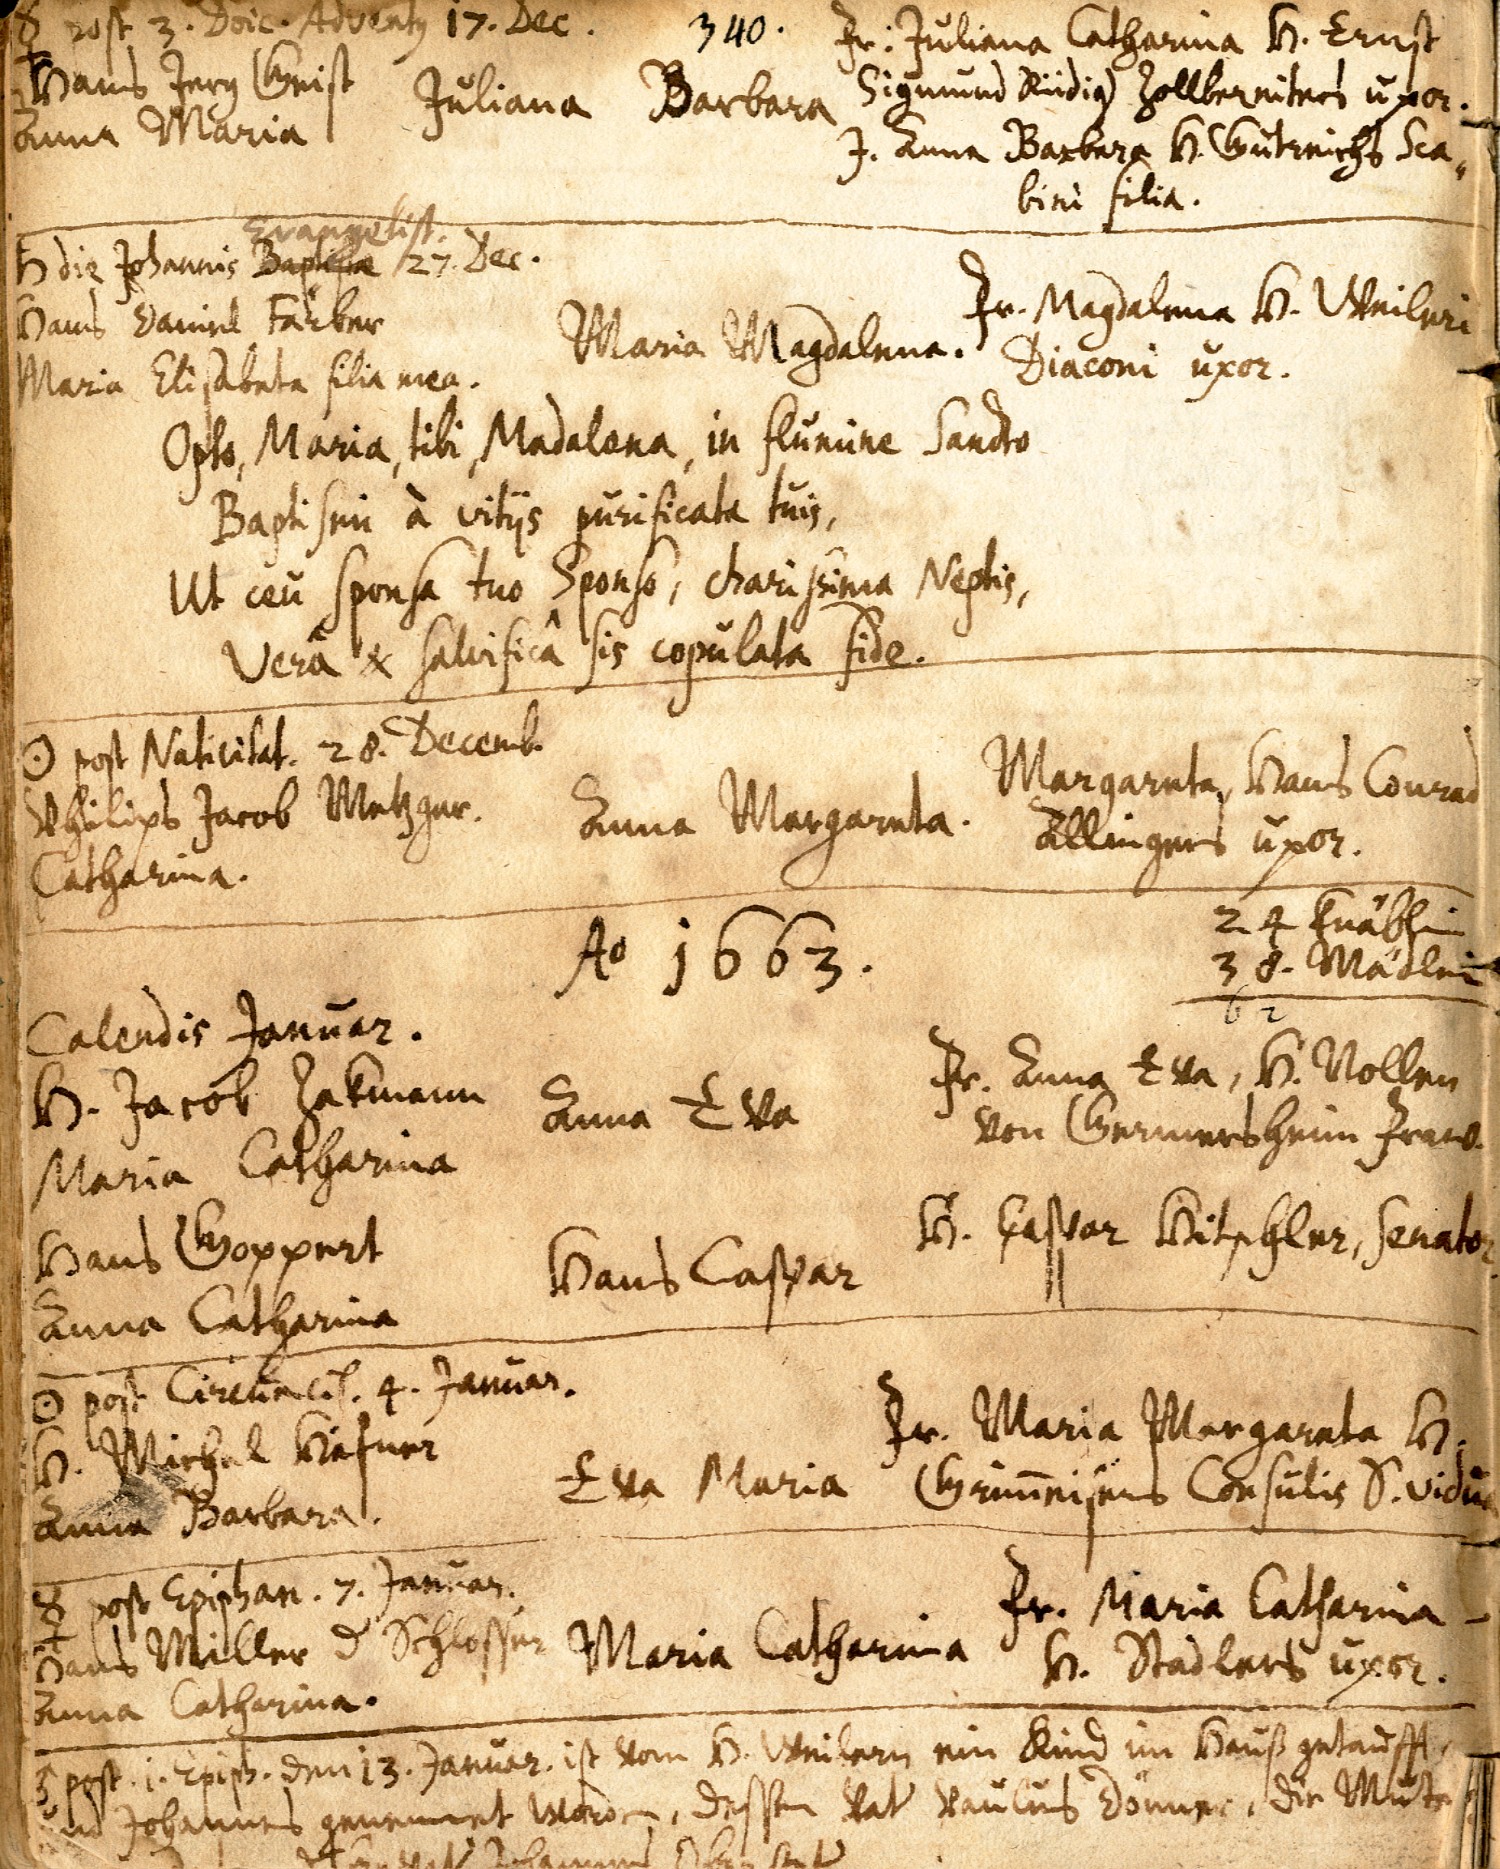 ☿ post 3. Doic. Adventq 17. Dec.
340.
Hans Jerg Geist
Anna Maria
Juliana Barbara
Fr: Juliana Catharina H. Ernst
Sigmund Rüdig Zollbereiters uxor.
J. Anna Barbara H. Gutreichs Sca„
bini filia.
Evangelist.
♄ die Johannis Baptistæ 27. Dec.
Hans Daniel Färber
Maria Elisabeta filia mea.
Maria Magdalena.
Fr. Magdalena H. Weileri
Diaconi uxor.
Opto, Maria, tibi, Madalena, in flumine Sancto
Baptismi à vitijs purificata tuis,
Ut ceu sponsa tuo Sponso, charissima Neptis,
Verâ & salvificâ sis copulata fide.
☉ post Nativitat. 28. Decemb.
Philips Jacob Metzger.
Catharina.
Anna Margareta.
Margareta, Hans Conrad
Ällingers uxor.
Ao 1663.
24 Knäblin
38. Mädlein
62
Calendis Januar.
H. Jacob Zakmann
Maria Catharina
Anna Eva
Fr. Anna Eva, H. Nollen
von Germersheim Fraw.
Hans Goppert
Anna Catharina
Hans Caspar
H. Caspar Hitschler, Senator
☉ post Circumcis. 4. Januar.
H. Michel Hafner
Anna Barbara.
Eva Maria
Fr. Maria Margareta H.
Grimeisens Consulis S. vidua
☿ post Epiphan. 7. Januar.
Hans Miller d Schlosser
Anna Catharina.
Maria Catharina
Fr. Maria Catharina
H. Stadlers uxor.
post. 1. Epiph. den 13. Januar. ist vom H. Weilern ein Kind im Hauß getaufft,
und Johannes genennet worden, dessen Vat Paulus Dörner, die Mutter
Johannes